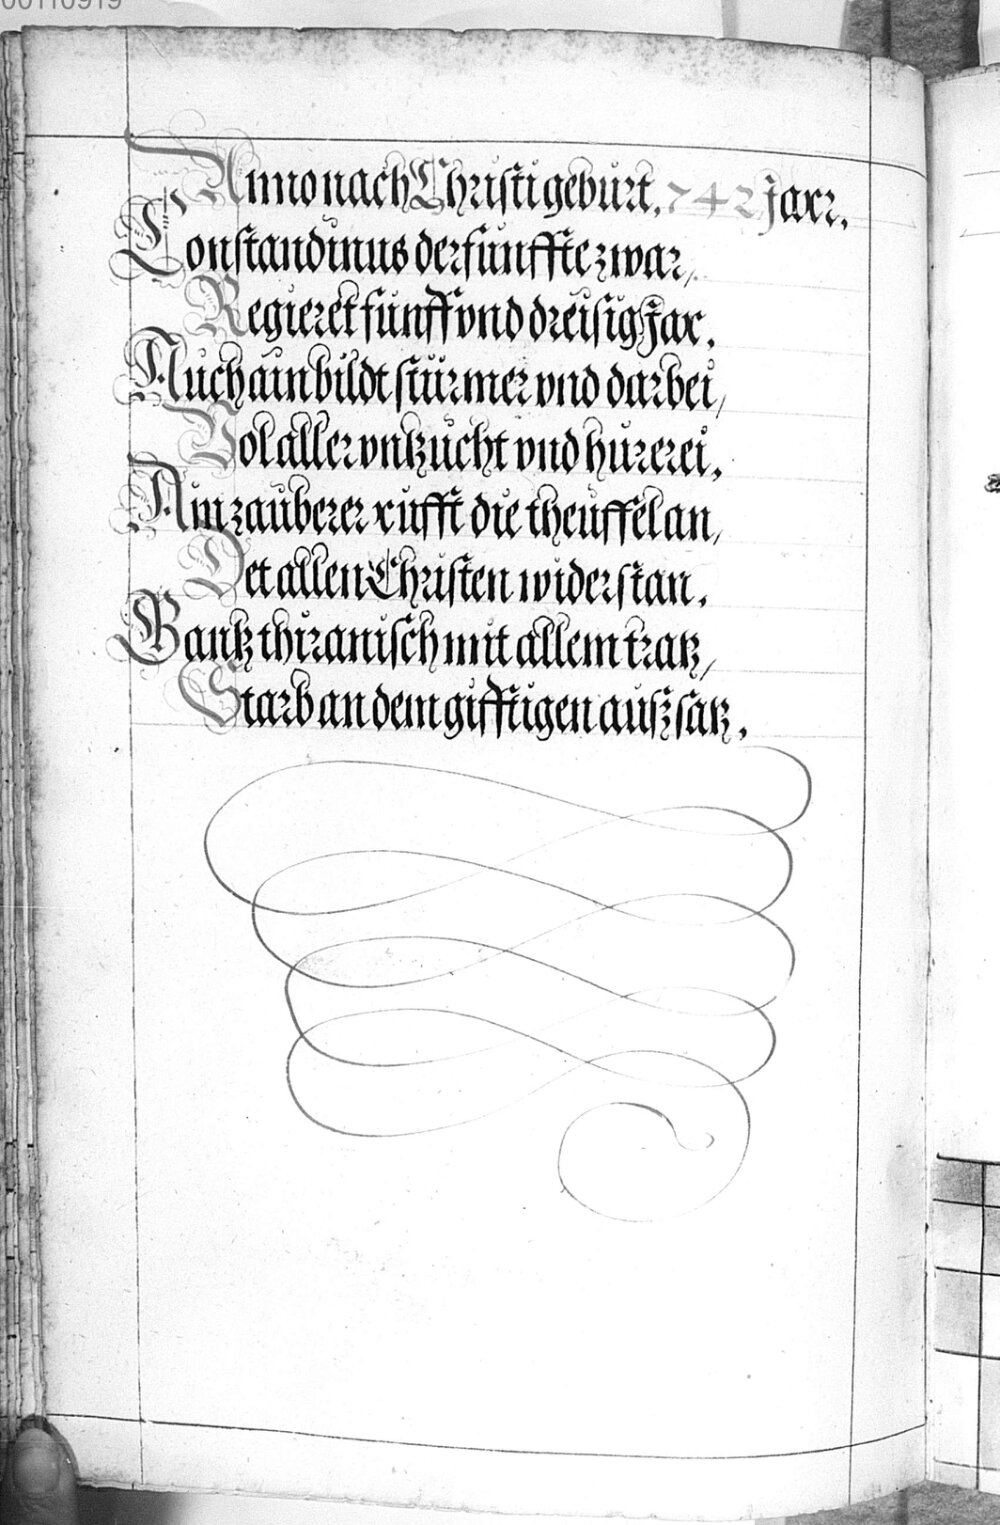 00110919
Anno nach Christi geburt. 742 Jaer.
Constandinus der funffte zwar,
Regieret funff vnd dreisig Jar.
Auch ain bildt stürmer vnd darbei,
Vol aller vnkzucht vnd hurerei.
Ain zauberer rufft die theuffel an,
Det allen Christen widerstan.
Gantz thiranisch mit allem tratz,
Starb an dem gifftigen außsatz.